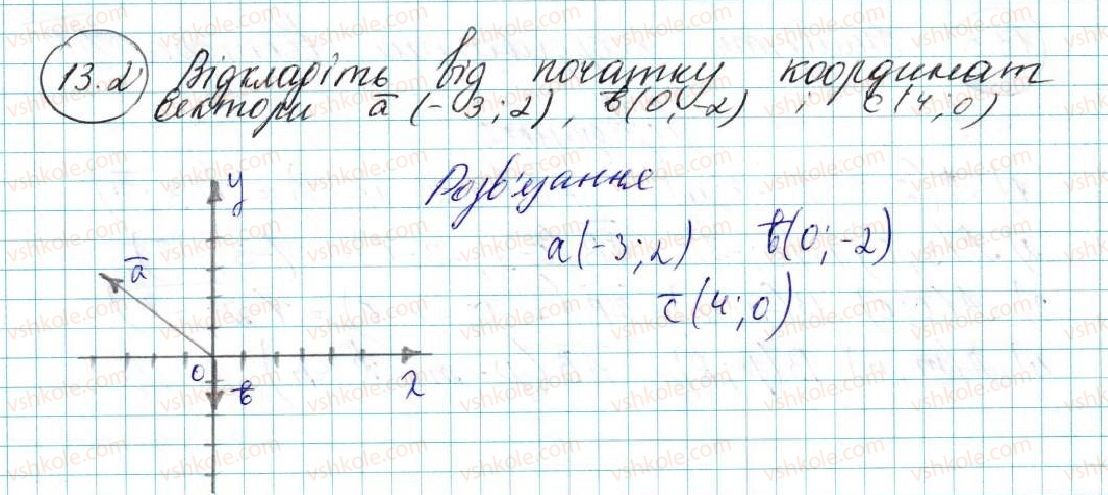 13.2 Відкладіть від початку координат
вектори a̅ (-3; 2), b̅(0; -2) ; c̅(4; 0)
Розв'язання
y
a̅
a(-3; 2) b̅(0; -2)
c̅(4; 0)
0 b̅ x
vshkole.com